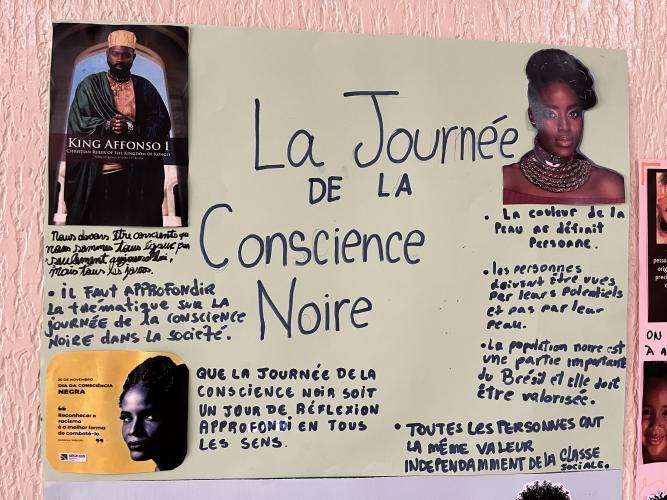 KING AFFONSO I
CHRISTIAN RULER OF THE KINGDOM OF KONGO
La Journée
DE LA
Conscience
Noire
Nous devons être conscients que
nous sommes tous égaux, pas
seulement aujourd'hui,
mais tous les jours.
• IL FAUT APPROFONDIR
La thématique SUR LA
JOURNÉE de la CONSCIENCE
NOIRE DANS LA SOCIÉTÉ.
20 DE NOVEMBRO
DIA DA CONSCIÊNCIA
NEGRA
Reconhecer o
racismo
é a melhor forma
de combatê-lo.
QUE LA JOURNÉE DE LA
CONSCIENCE NOIR SOIT
UN JOUR DE RÉFLEXION
APPROFONDI EN TOUS
LES SENS.
• La couleur de la
Peau ne définit
Personne.
• les personnes
doivent être vues
par leurs potentiels
et pas par leur
peau.
• La population noire est
une partie importante
du Brésil et elle doit
être valorisée.
• TOUTES LES PERSONNES ONT
LA MÊME VALEUR
INDEPENDAMMENT DE LA CLASSE
SOCIALE.
ON